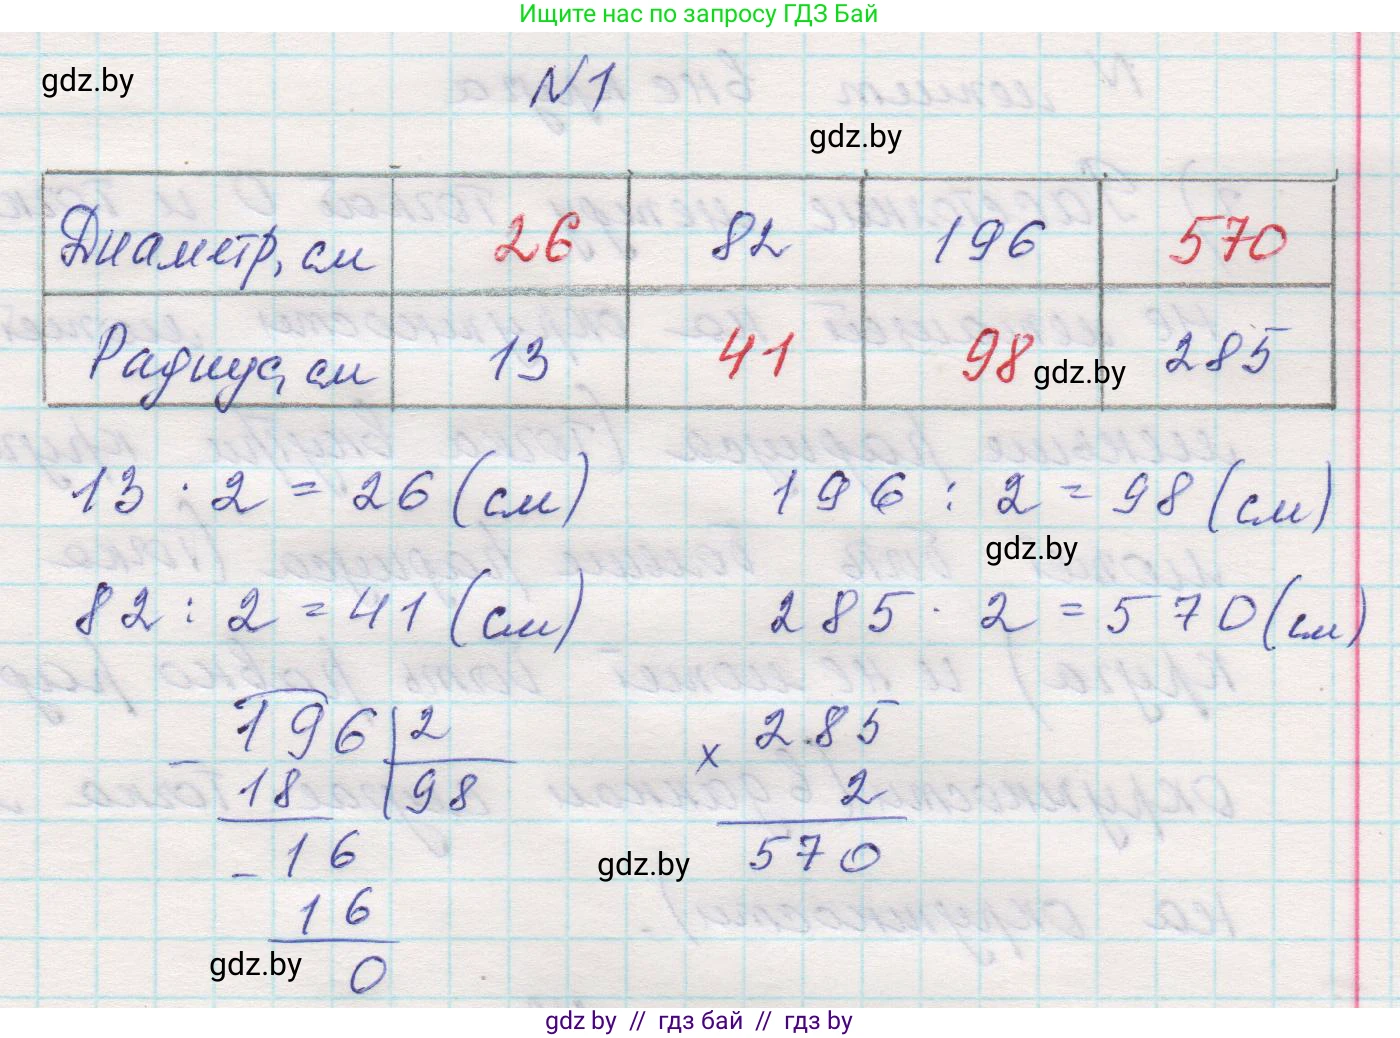 Ищите нас по запросу ГДЗ Бай
gdz.by
N1
gdz.by
Диаметр, см 26 82 196 570
Радиус, см 13 41 98 285
gdz.by
13 · 2 = 26 (см) 196 : 2 = 98 (см)
gdz.by
82 : 2 = 41 (см) 285 · 2 = 570 (см)
- 196 | 2
18 | 98
- 16
16
0
× 285
2
570
gdz.by
gdz.by
gdz by // гдз бай // гдз by